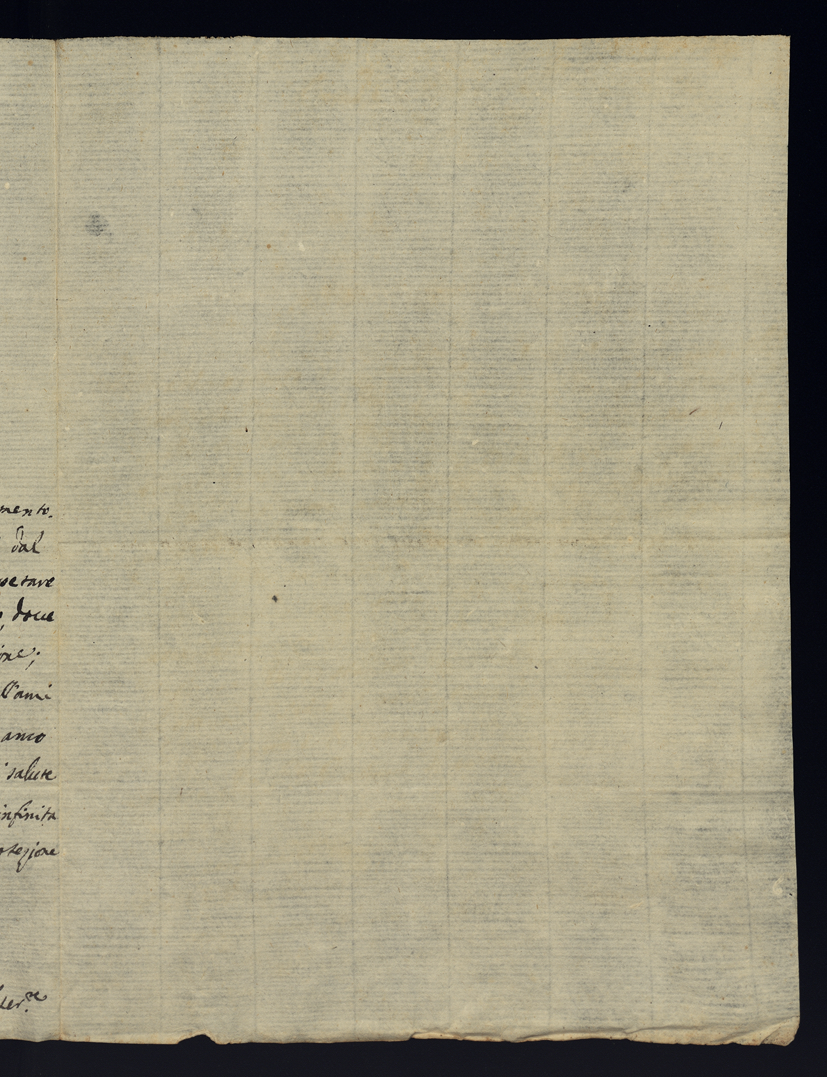 mento.
dal
petare
, dove
ione;
l'ami
anco
i salute
infinita
otezione
Ser.re